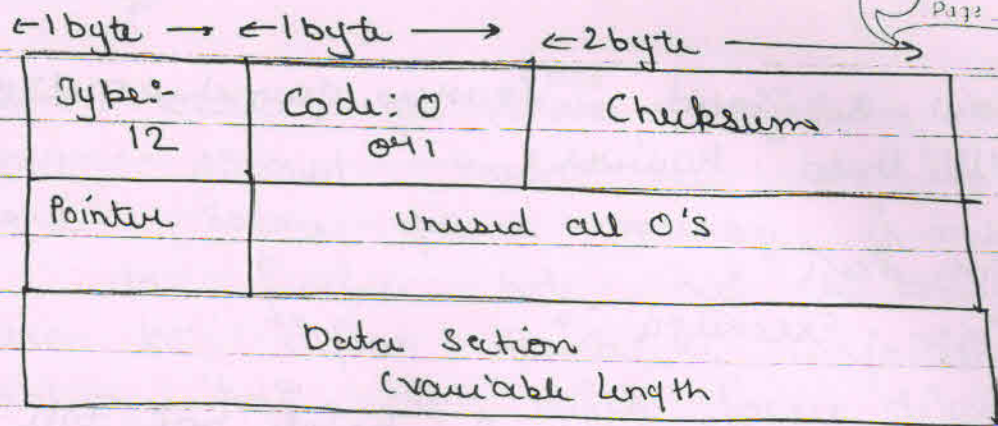 Page
←1byte → ←1byte → ←2byte →
Type:- Code: 0 Checksum
12 or 1
Pointer Unused all 0's
Data Section
(variable length